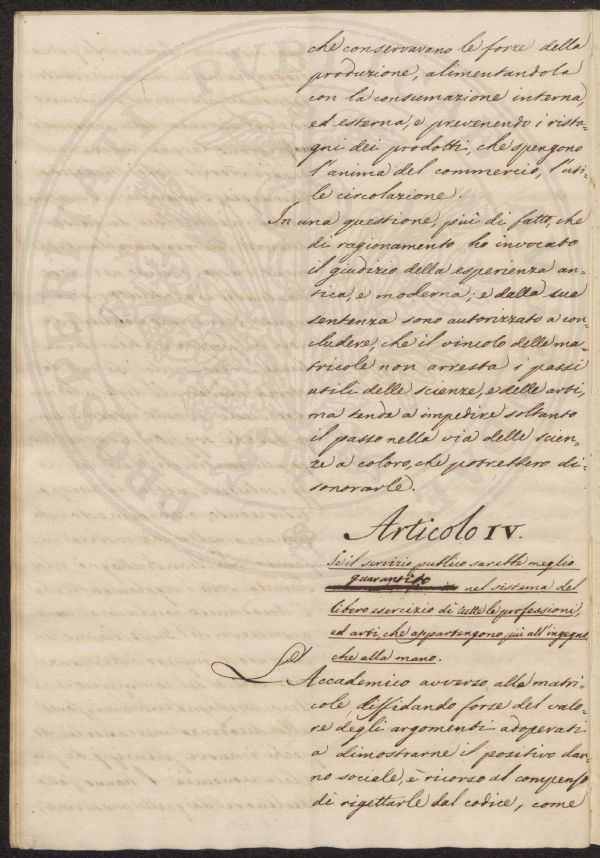 che conservavano le forze della
produzione, alimentandola
con la consumazione interna,
ed esterna, e prevenendo i rista-
gni dei prodotti, che spengono
l'anima del commercio, l'uti-
le circolazione.
In una questione, più di fatto, che
di ragionamento ho invocato
il giudizio della esperienza an-
tica, e moderna; e dalla sua
sentenza sono autorizzato a con-
cludere, che il vincolo delle ma-
tricole non arresta i passi
utili delle scienze, e delle arti,
ma tende a impedire soltanto
il passo nella via delle scien-
ze a coloro, che potrebbero di-
sonorarle.
Articolo IV.
Se il servizio publico sarebbe meglio
guarantito
nel sistema del
libero esercizio di tutte le professioni,
ed arti, che appartengono più all'ingegno,
che alla mano.
L'Accademico avverso alla matri-
cole, diffidando forse del valo-
re degli argomenti adoperati
a dimostrarne il positivo dan-
no sociale, è ricorso al compenso
di rigettarle dal codice, come